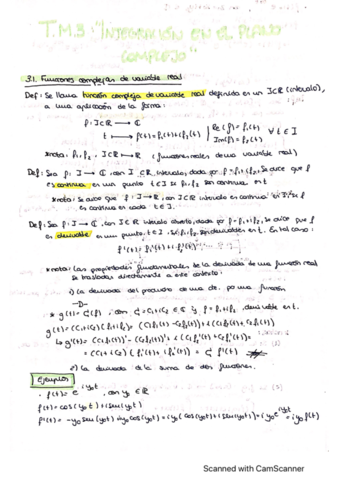 T.M.3 "INTEGRACIÓN EN EL PLANO
COMPLEJO"
3.1. Funciones complejas de variable real
Def: Se llama función compleja de variable real definida en un I⊂ℝ (intervalo),
a una aplicación de la forma:
f: I⊂ℝ → ℂ
t → f(t) = f₁(t)+if₂(t) / Re(f) = f₁(t) ∀ t ∈ I
Im(f) = f₂(t)
*nota: f₁, f₂: I⊂ℝ → ℝ (funciones reales de una variable real)
Def: Sea f: I → ℂ, con I ⊂ℝ intervalo, dada por f = f₁+if₂, se dice que f
es continua en un punto t∈I si f₁, f₂ son continuas en t.
*nota: se dice que f: I → ℝ, con I⊂ℝ intervalo es continua en I, si f
es continua en cada t∈I.
Def: Sea f: I → ℂ, con I⊂ℝ intervalo abierto, dada por f = f₁+if₂, se dice que f
es derivable en un punto t∈I, si f₁, f₂ son derivables en t. En tal caso:
f'(t) = f₁'(t) + i f₂'(t)
*nota: Las propiedades fundamentales de la derivada de una función real
se trasladan directamente a este contexto:
1) La derivada del producto de una cte. por una función
-D-
* g(t) = c f(t), con c = c₁+ic₂ ∈ ℂ y f = f₁+if₂, derivable en t.
g(t) = (c₁+ic₂)(f₁+if₂) = (c₁f₁(t) - c₂f₂(t)) + i(c₁f₂(t) + c₂f₁(t))
↳ g'(t) = (c₁f₁'(t) - c₂f₂'(t)) + i(c₁f₂'(t) + c₂f₁'(t)) =
= (c₁+ic₂)(f₁'(t)+if₂'(t)) = c f'(t)
2) La derivada de la suma de dos funciones.
Ejemplos
· f(t) = e^{iy₀t}, con y₀ ∈ ℝ
f(t) = cos(y₀t) + isen(y₀t)
f'(t) = -y₀sen(y₀t) + iy₀cos(y₀t) = iy₀(cos(y₀t)+isen(y₀t)) = iy₀e^{iy₀t} = iy₀f(t)
Scanned with CamScanner